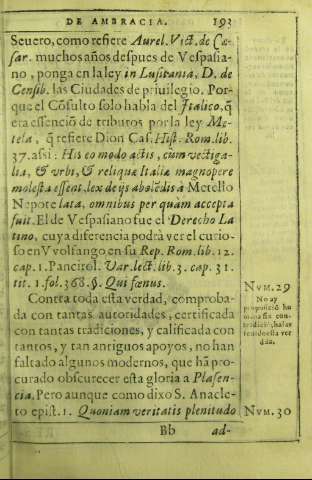 DE AMBRACIA. 193
Seuero, como refiere Aurel. Vict. de Ce-
sar. muchos años despues de Vespasia-
no, ponga en la ley in Lusitania, D. de
Censib. las Ciudades de priuilegio. Por-
que el Cōsulto solo habla del Italico, q̄
era essenciō de tributos por la ley Me-
tela, q̄ refiere Dion Cas. Hist. Rom. lib.
37. assi: His eo modo actis, cum vectiga-
lia, & vrbi, & reliquæ Italiæ magnopere
molesta essent, lex de ijs abolēdis à Metello
Nepote lata, omnibus per quàm accepta
fuit. El de Vespasiano fue el Derecho La
tino, cuya diferencia podrà ver el curio-
so en Vvolfango en su Rep. Rom. lib. 12.
cap. 1. Pancirol. Var. lect. lib. 3. cap. 31.
tit. 1. fol. 368. §. Qui fœnus.
Contra toda esta verdad, comproba-
da con tantas autoridades, certificada
con tantas tradiciones, y calificada con
tantos, y tan antiguos apoyos, no han
faltado algunos modernos, que hā pro-
curado obscurecer esta gloria a Plasen-
cia. Pero aunque como dixo S. Anacle-
to epist. 1. Quoniam veritatis plenitudo
Bb ad-
NVM. 29
No ay
proposiciō hu
mana sin con-
tradiciō, ha la
verda-
NVM. 30